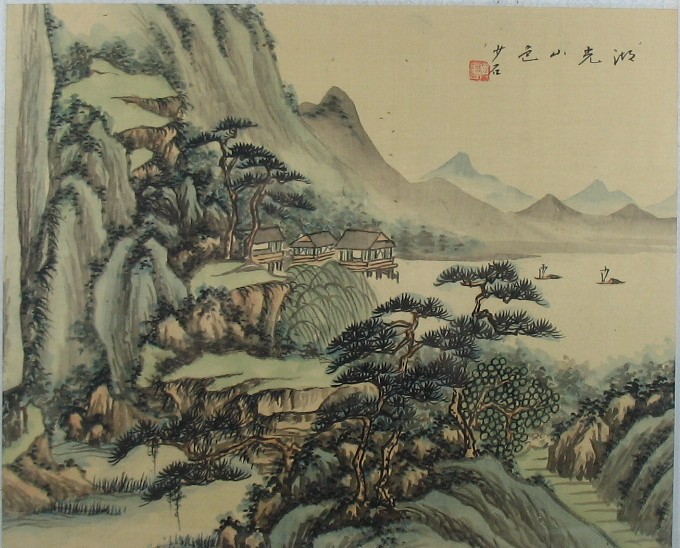 湖光山色
少石